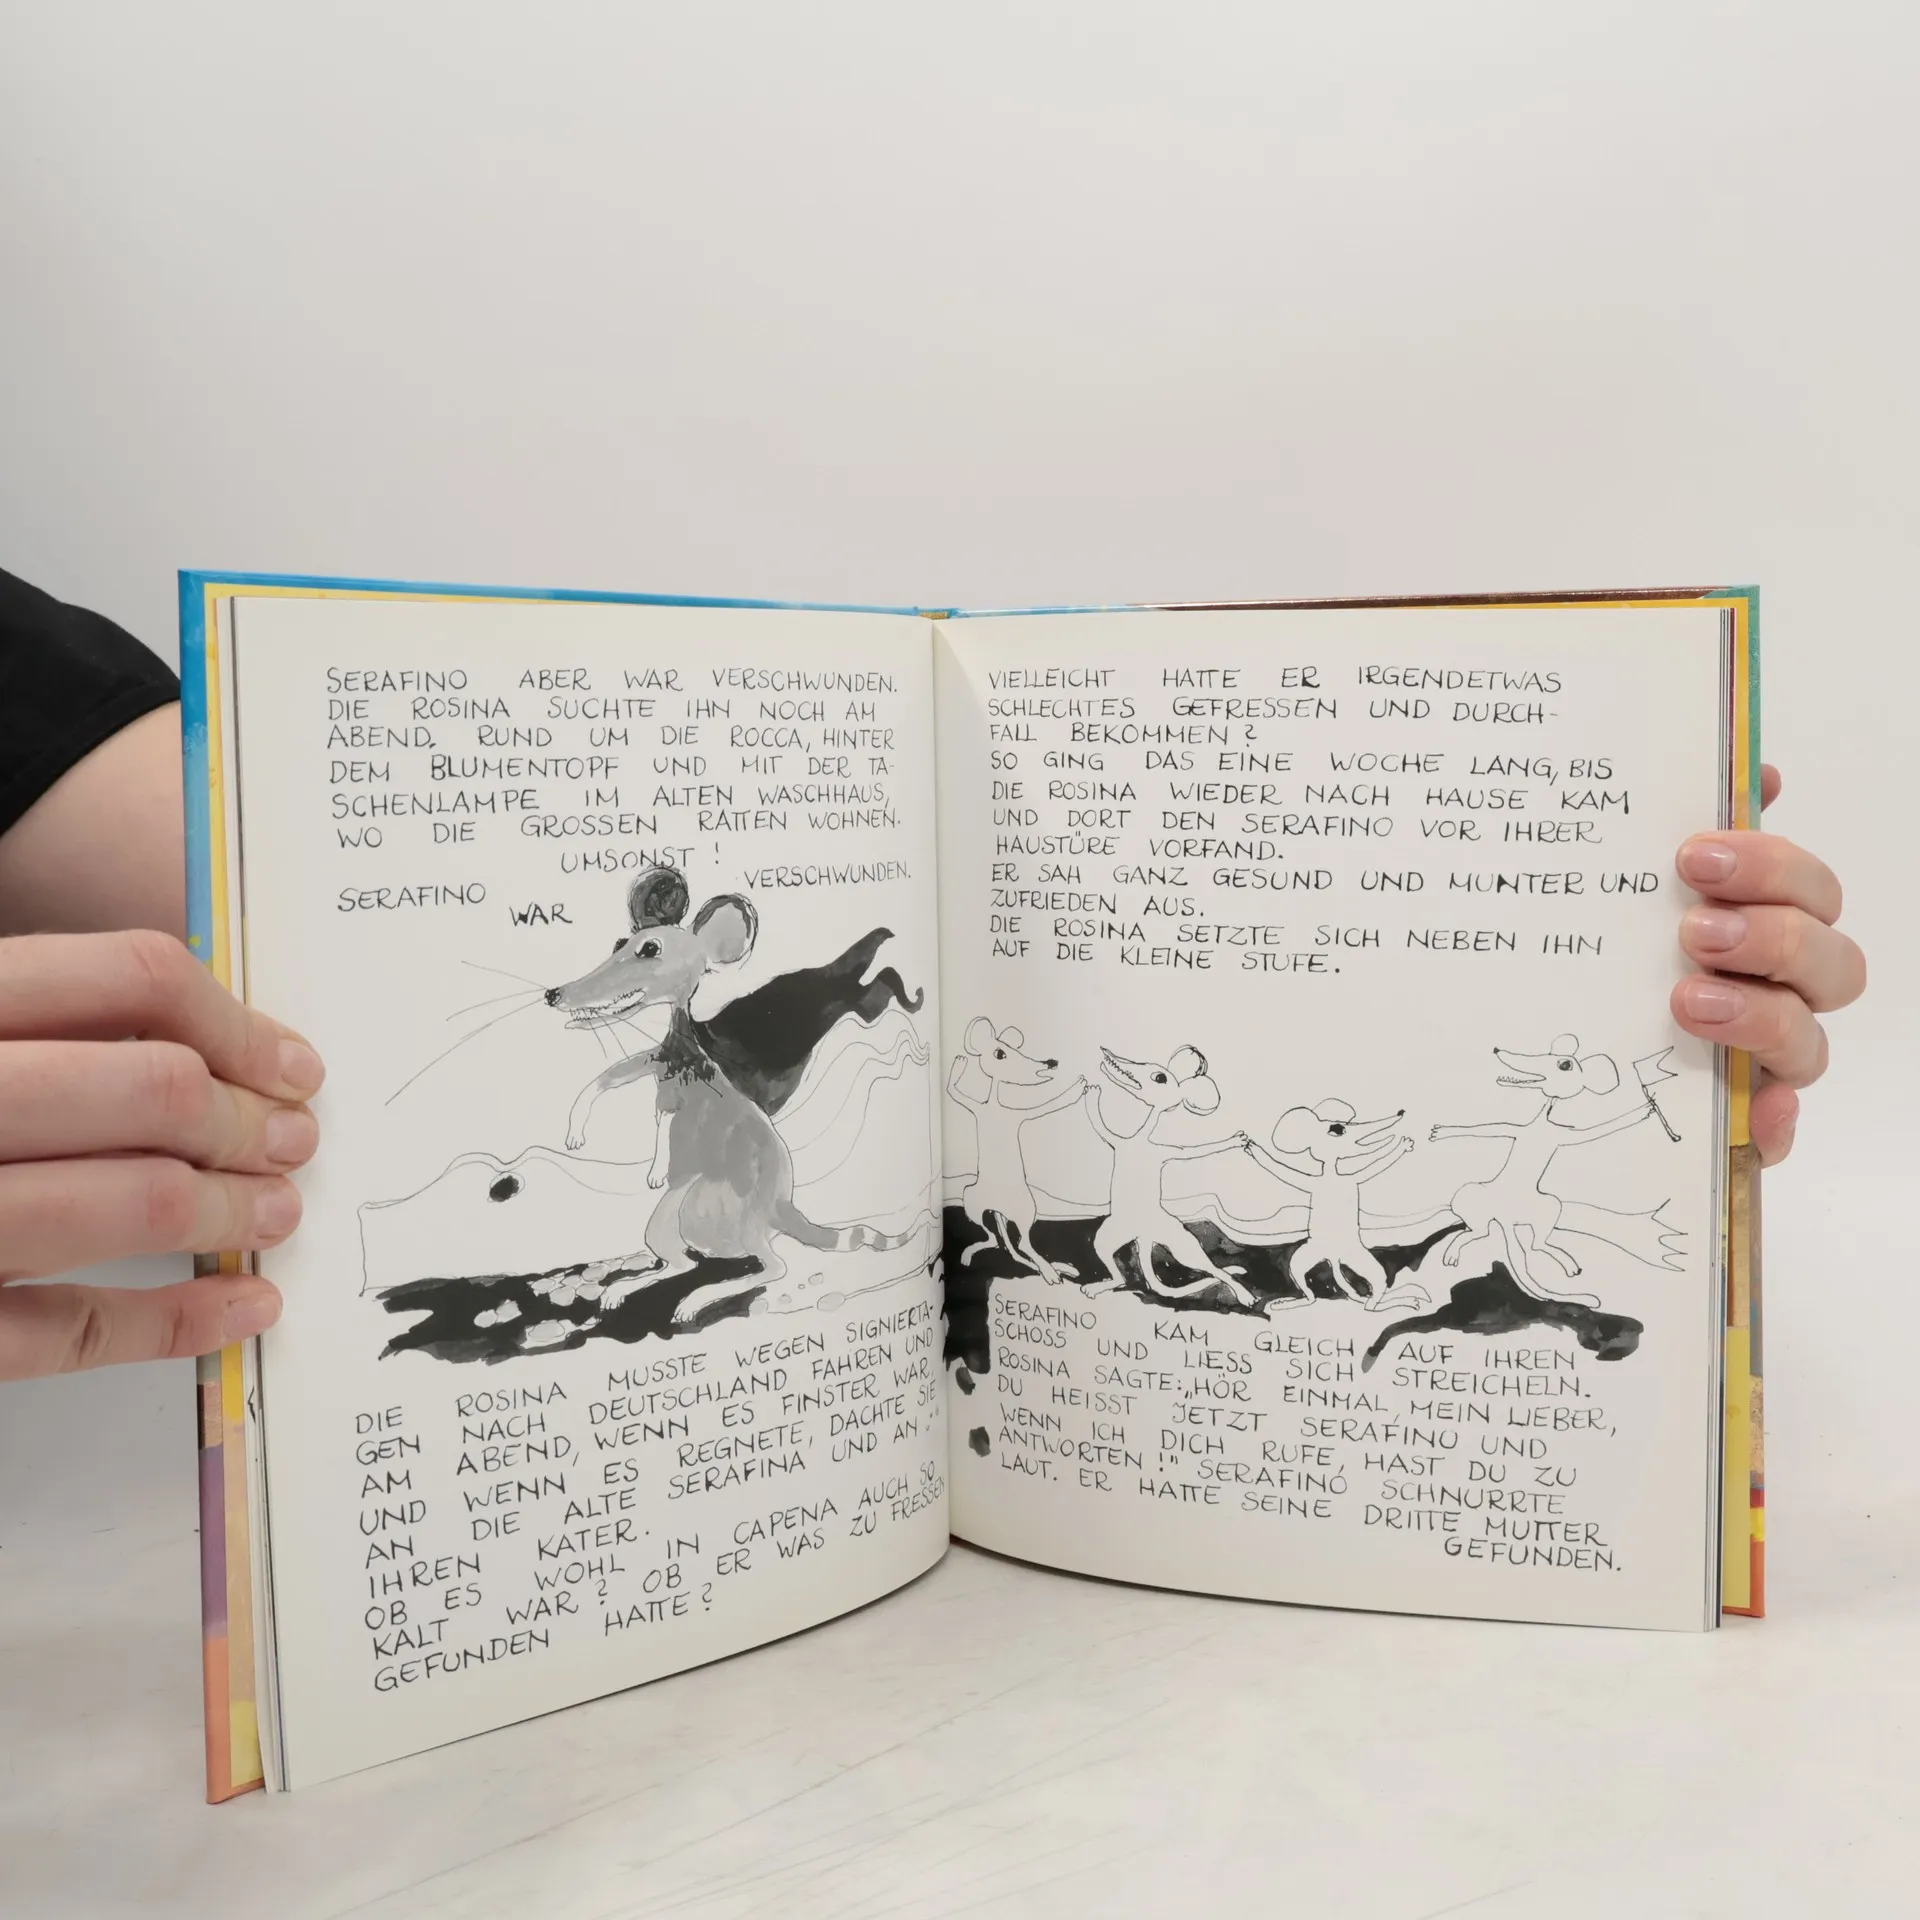 SERAFINO ABER WAR VERSCHWUNDEN.
DIE ROSINA SUCHTE IHN NOCH AM
ABEND. RUND UM DIE ROCCA, HINTER
DEM BLUMENTOPF UND MIT DER TA-
SCHENLAMPE IM ALTEN WASCHHAUS,
WO DIE GROSSEN RATTEN WOHNEN.
UMSONST !
SERAFINO WAR VERSCHWUNDEN.
DIE ROSINA MUSSTE WEGEN SIGNIERTA-
GEN NACH DEUTSCHLAND FAHREN UND
AM ABEND, WENN ES FINSTER WAR,
UND WENN ES REGNETE, DACHTE SIE
AN DIE ALTE SERAFINA UND AN
IHREN KATER.
OB ES WOHL IN CAPENA AUCH SO
KALT WAR ? OB ER WAS ZU FRESSEN
GEFUNDEN HATTE ?
VIELLEICHT HATTE ER IRGENDETWAS
SCHLECHTES GEFRESSEN UND DURCH-
FALL BEKOMMEN ?
SO GING DAS EINE WOCHE LANG, BIS
DIE ROSINA WIEDER NACH HAUSE KAM
UND DORT DEN SERAFINO VOR IHRER
HAUSTÜRE VORFAND.
ER SAH GANZ GESUND UND MUNTER UND
ZUFRIEDEN AUS.
DIE ROSINA SETZTE SICH NEBEN IHN
AUF DIE KLEINE STUFE.
SERAFINO KAM GLEICH AUF IHREN
SCHOSS UND LIESS SICH STREICHELN.
ROSINA SAGTE: „HÖR EINMAL, MEIN LIEBER,
DU HEISST JETZT SERAFINO UND
WENN ICH DICH RUFE, HAST DU ZU
ANTWORTEN !" SERAFINO SCHNURRTE
LAUT. ER HATTE SEINE DRITTE MUTTER
GEFUNDEN.